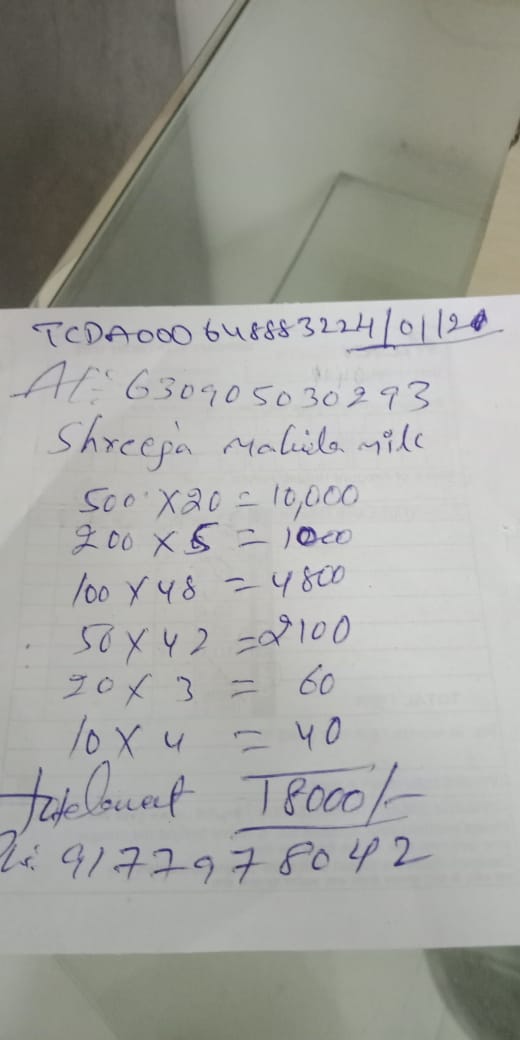 TCDA000648883224/01/21
A/c: 630905030293
Shreeja mahila milk
500 X 20 = 10,000
200 X 5 = 1000
100 X 48 = 4800
50 X 42 = 2100
20 X 3 = 60
10 X 4 = 40
18000/-
9177978042